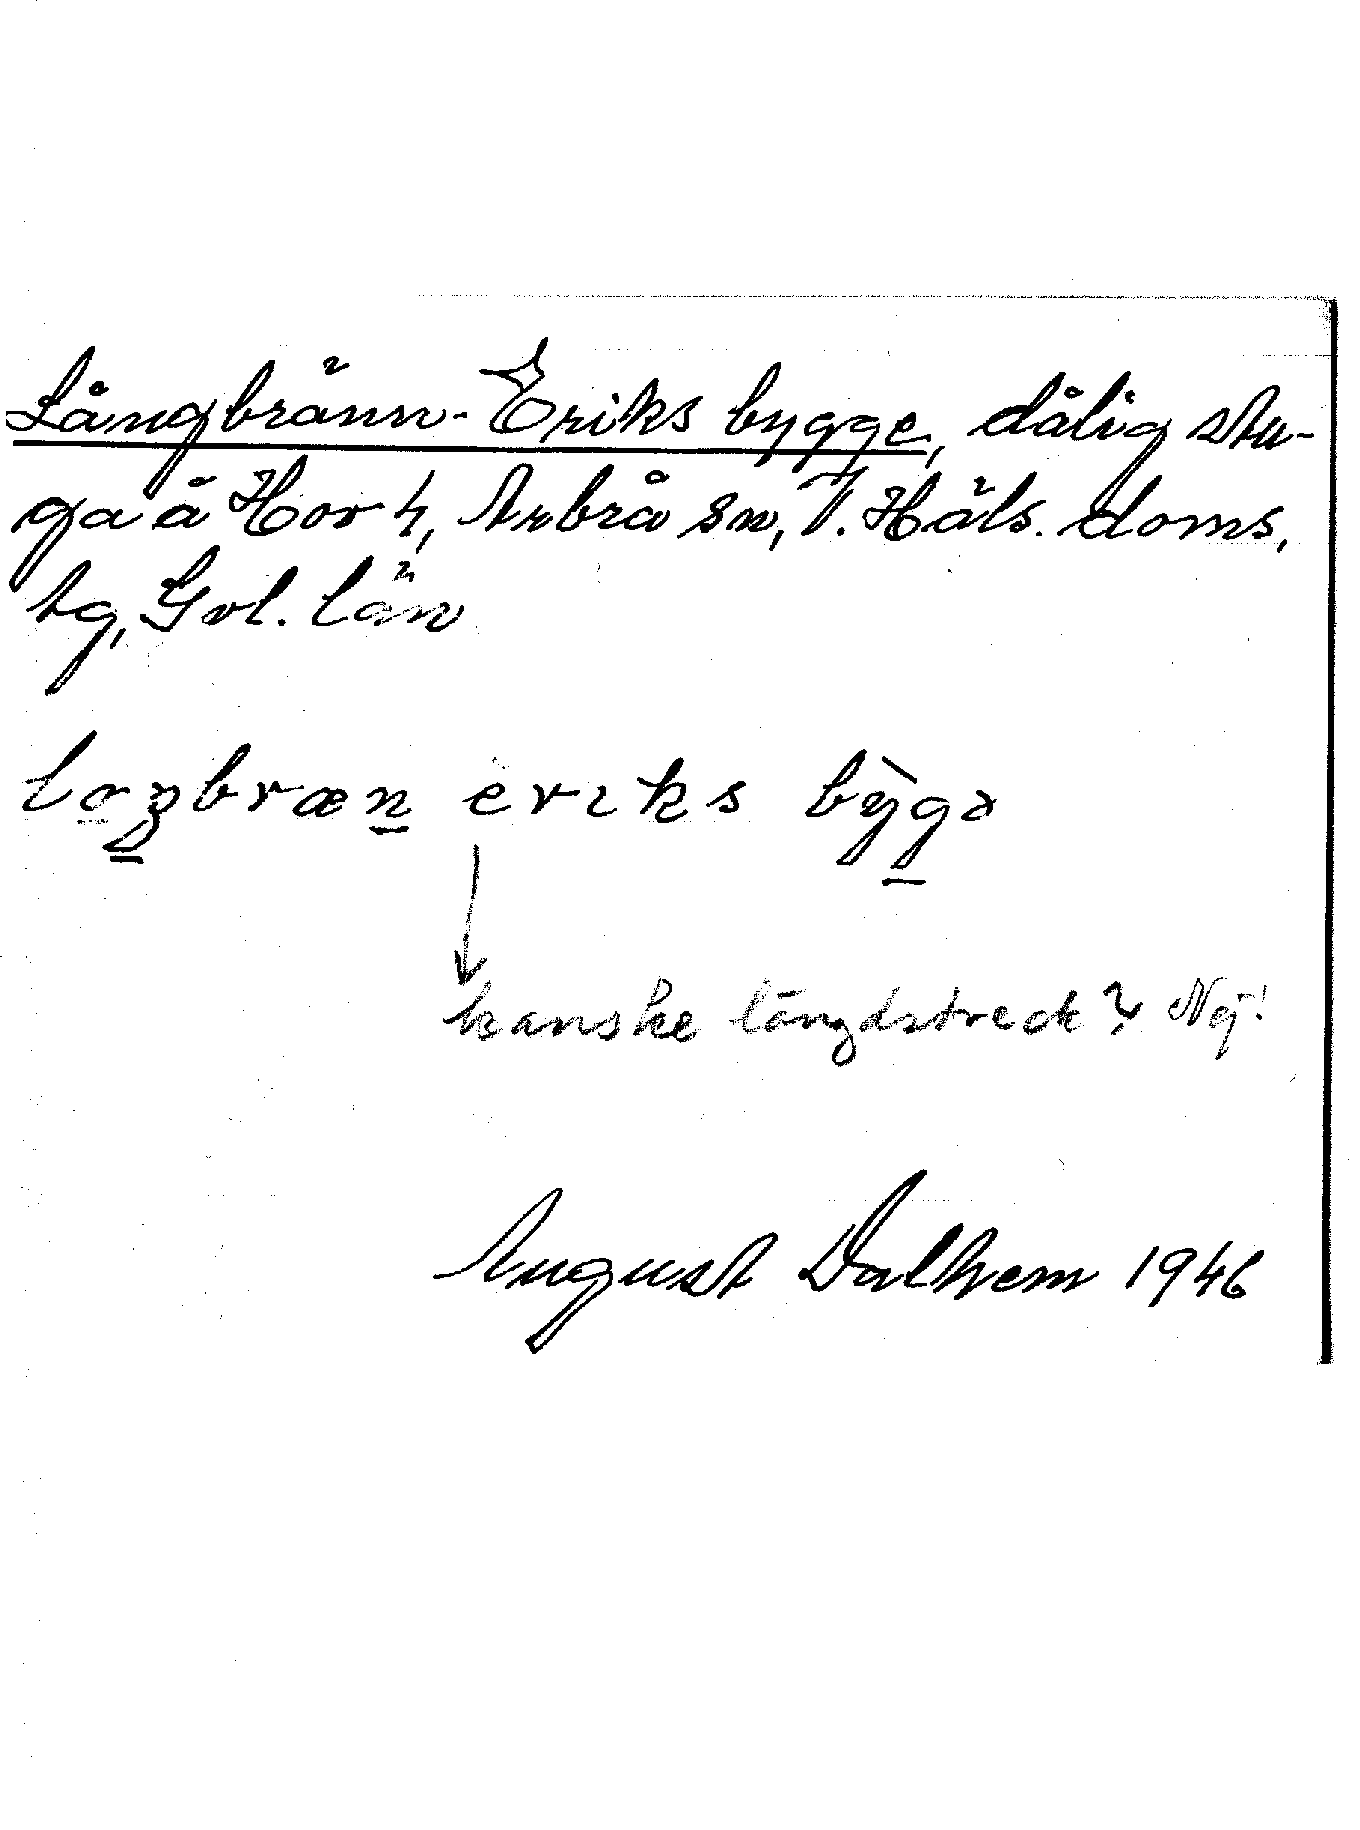 Långbränn-Eriks bygge, dålig stu-
ga å Hov 4, Arbrå sn, V. Häls. doms.
tg, Gvl. län
loŋbræn eriks bỳgə
kanske längdstreck? Nej!
August Dalhem 1946